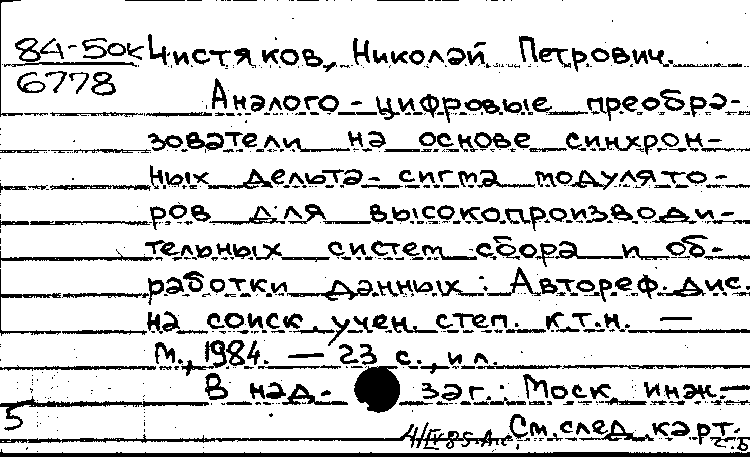 84-50к Чистяков, Николай Петрович.
6778
Аналого-цифровые преобра-
зователи на основе синхрон-
ных дельта-сигма модулято-
ров для высокопроизводи-
тельных систем сбора и об-
работки данных: Автореф. дис.
на соиск. учен. степ. к.т.н. —
М., 1984. — 23 с., ил.
В над- заг.: Моск. инж.—
5
См. след. карт.